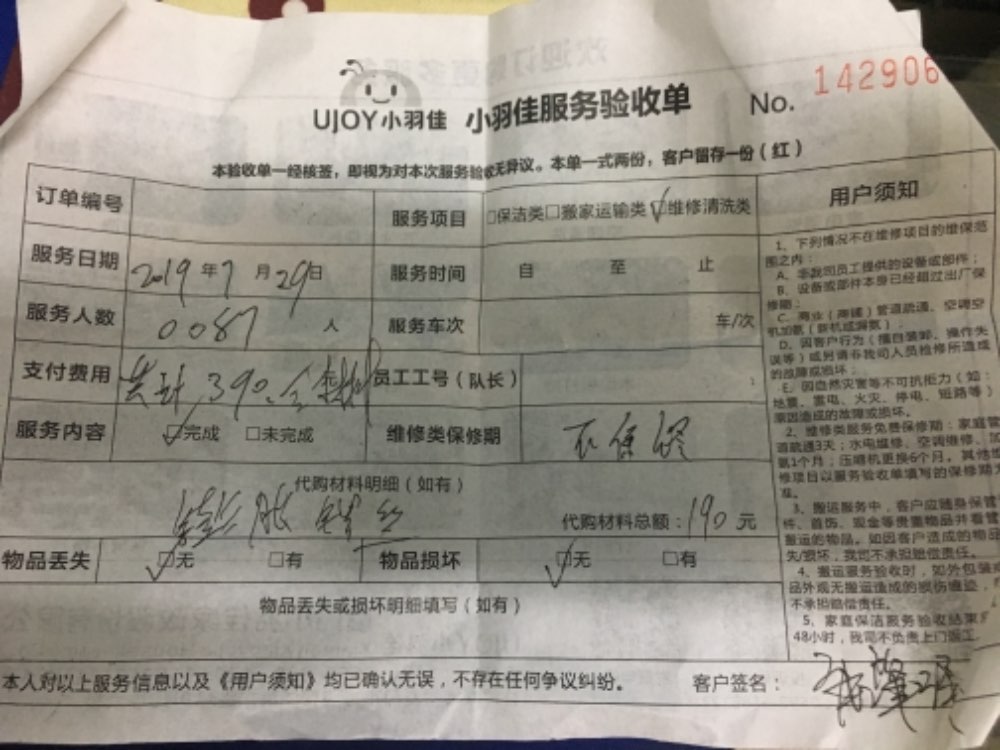 UJOY小羽佳 小羽佳服务验收单 No. 142906
本验收单一经核签，即视为对本次服务验收无异议。本单一式两份，客户留存一份（红）
订单编号 服务项目 □保洁类□搬家运输类☑维修清洗类
服务日期 2019年7月29日 服务时间 自 至 止
服务人数 0087 人 服务车次 车/次
支付费用 共计390. 员工工号（队长）
服务内容 ☑完成 □未完成 维修类保修期 不保修
代购材料明细（如有）
膨胀 丝 代购材料总额：190元
物品丢失 ☑无 □有 物品损坏 ☑无 □有
物品丢失或损坏明细填写（如有）
本人对以上服务信息以及《用户须知》均已确认无误，不存在任何争议纠纷。 客户签名：
用户须知
1、下列情况不在维修项目的维保范
围之内：
A、非我司员工提供的设备或部件；
B、设备或部件本身已经超过出厂保
修期；
C、商业（商铺）管道疏通、空调空
机加氨（新机或漏氨）；
D、因客户行为（擅自装卸、操作失
误等）或另请非我司人员检修所造成
的故障或损坏；
E、因自然灾害等不可抗拒力（如：
地震、雷电、火灾、停电、短路等）
原因造成的故障或损坏。
2、维修类服务免费保修期：家庭管
道疏通3天；水电维修、空调维修、加
氨1个月；压缩机更换6个月。其他维
修项目以服务验收单填写的保修期
准。
3、搬运服务中，客户应随身保管
件、首饰、现金等贵重物品并看管
搬运的物品。如因客户造成的物品
失/损坏，我司不承担赔偿责任。
4、搬运服务验收时，如外包装
品外观无搬运造成的损伤痕迹，
不承担赔偿责任。
5、家庭保洁服务验收结束
48小时，我司不负责上门返工。